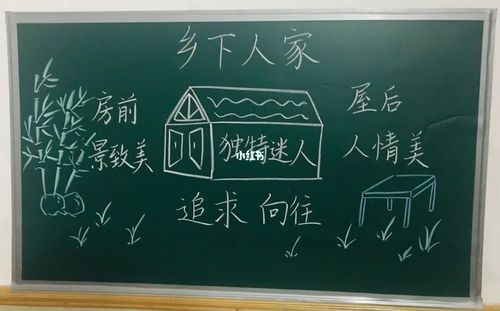 乡下人家
房前
景致美
独特迷人
小红书
屋后
人情美
追求 向往